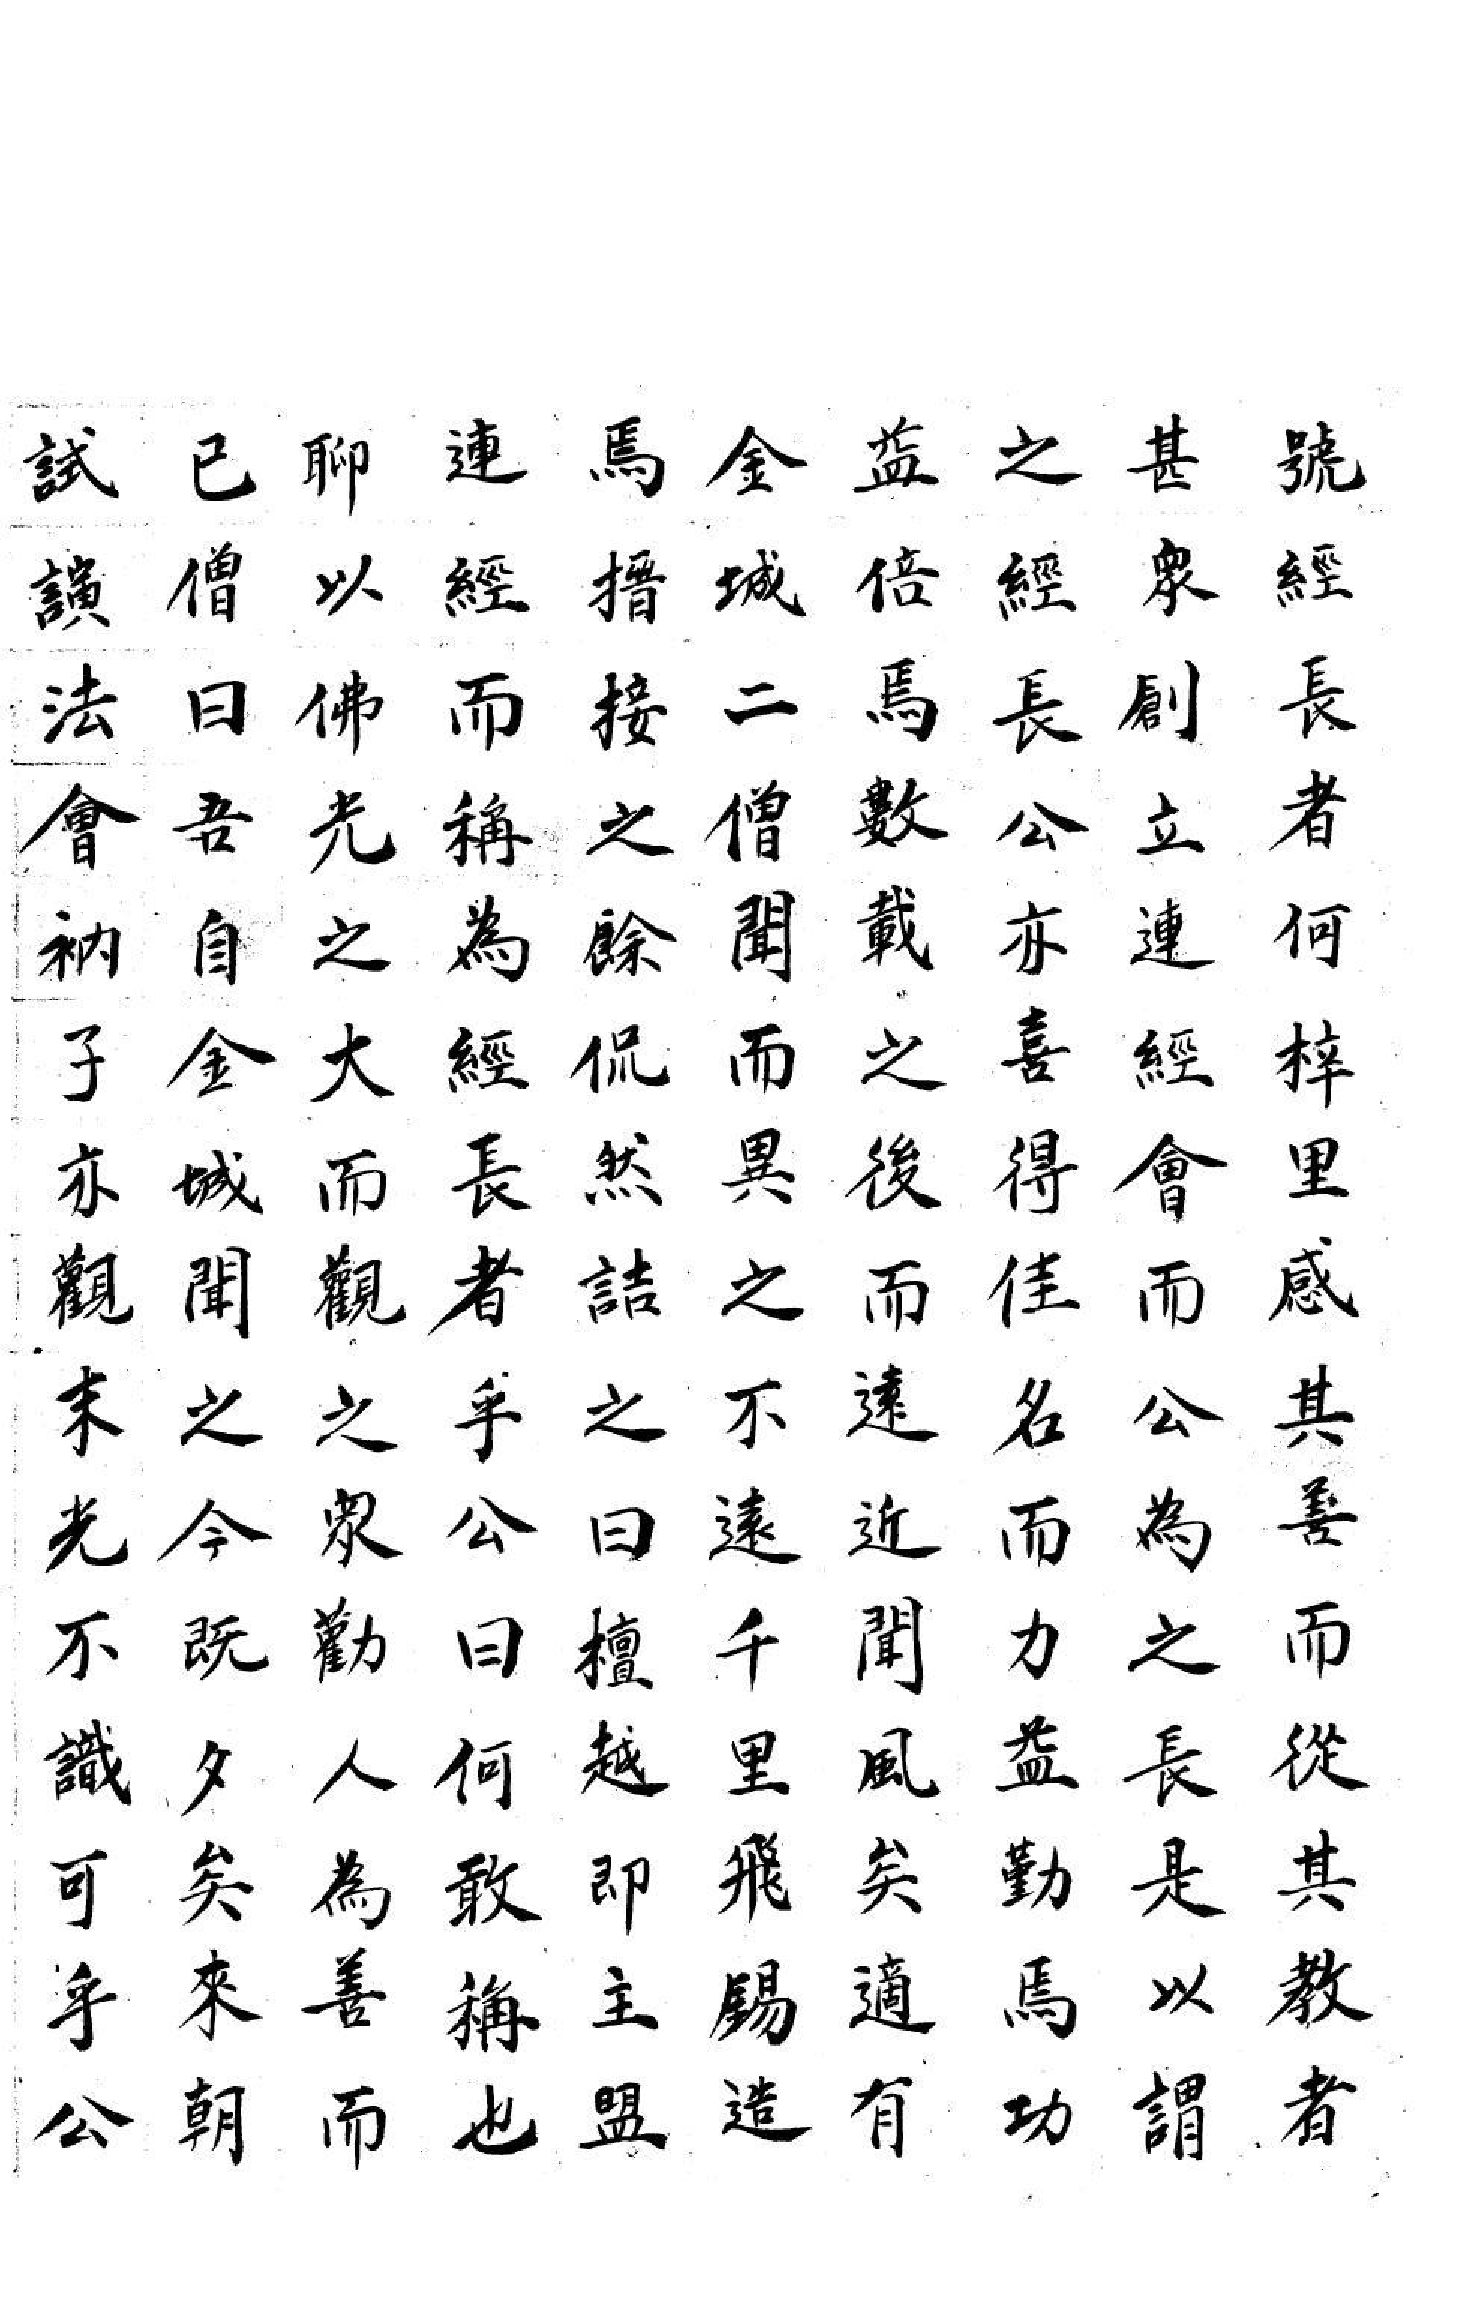 號經長者何梓里感其善而從其教者
甚眾創立連經會而公為之長是以謂
之經長公亦喜得佳名而力益勤焉功
益倍焉數載之後而遠近聞風矣適有
金城二僧聞而異之不遠千里飛錫造
焉搢接之餘侃然詰之曰檀越即主盟
連經而稱為經長者乎公曰何敢稱也
聊以佛光之大而觀之眾勸人為善而
已僧曰吾自金城聞之今既夕矣來朝
試演法會衲子亦觀末光不識可乎公